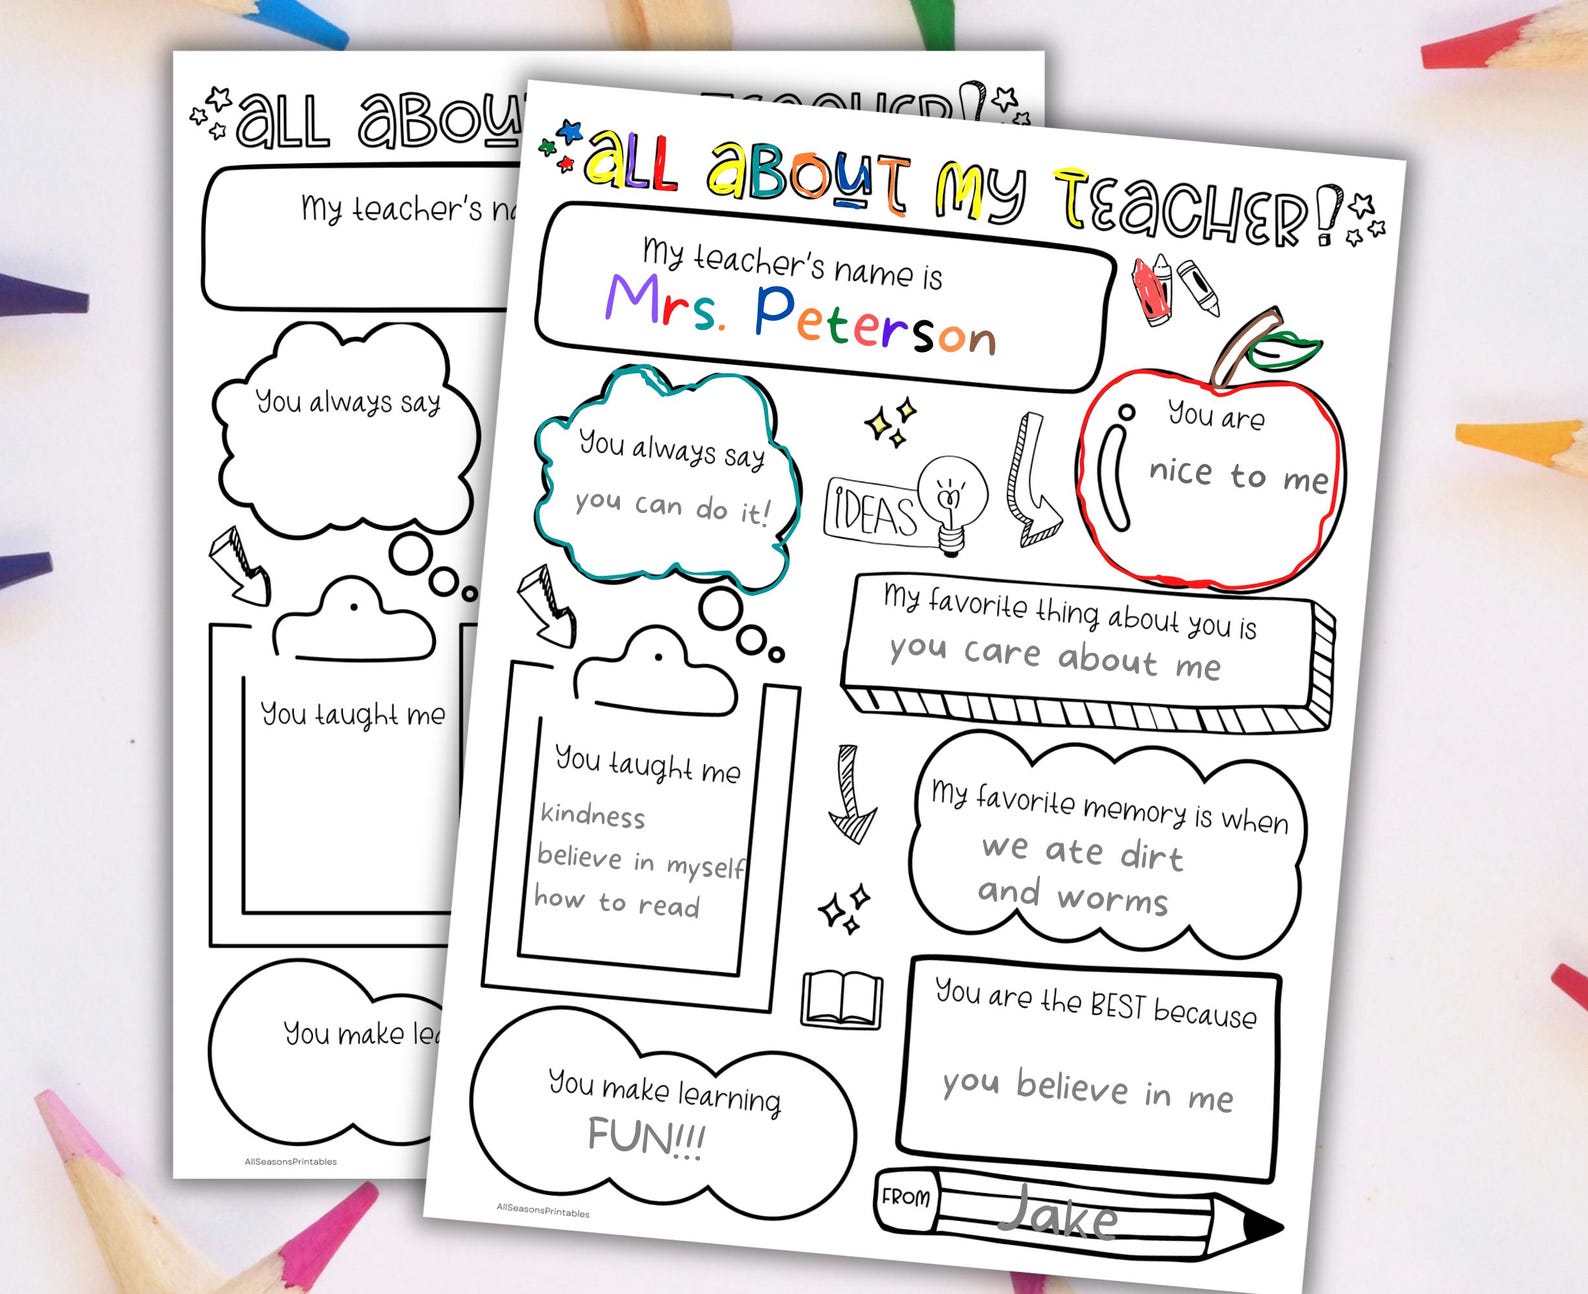 ALL ABOU
TEACHER!
My teacher's na
You always say
You taught me
You make lea
AllSeasonsPrintables
ALL ABOUT MY TEACHER!
My teacher's name is
Mrs. Peterson
You always say
you can do it!
IDEAS
You are
nice to me
My favorite thing about you is
you care about me
You taught me
kindness
believe in myself
how to read
My favorite memory is when
we ate dirt
and worms
You are the BEST because
you believe in me
You make learning
FUN!!!
FROM
Jake
AllSeasonsPrintables